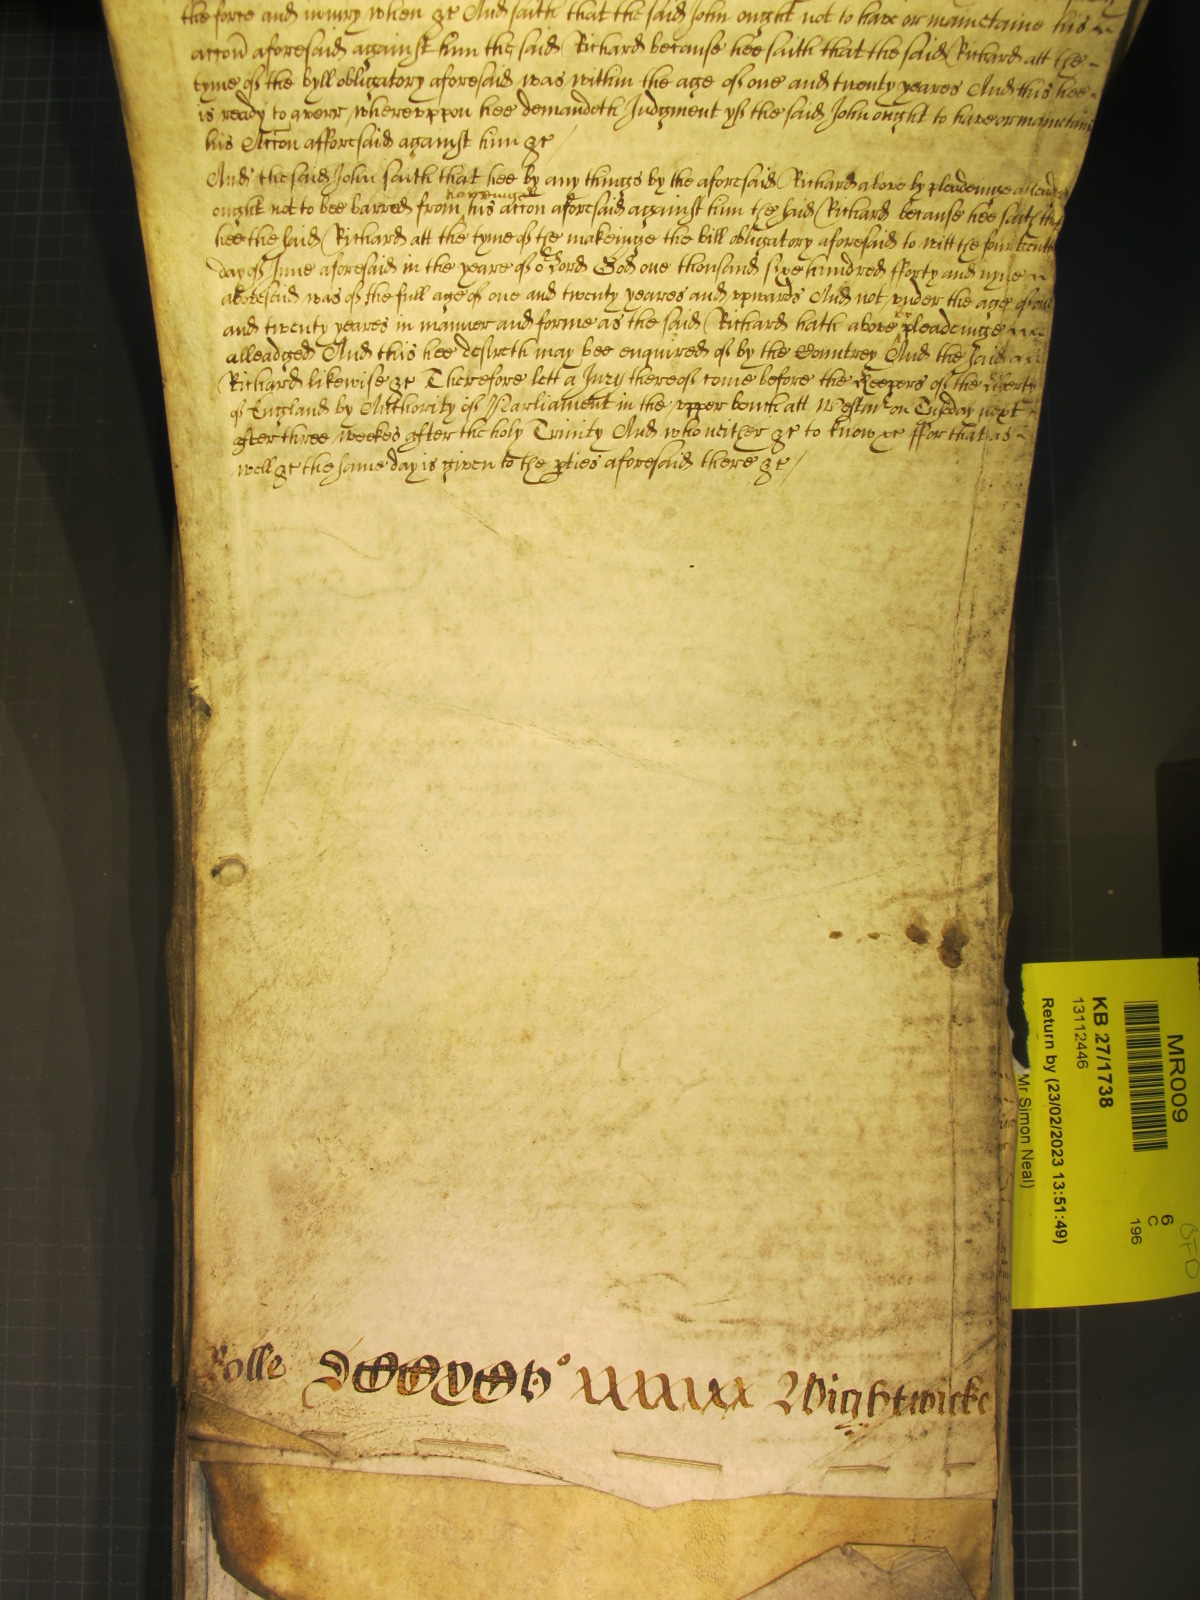 the force and iniury when &c And saith that the said John ought not to have or mainetaine his
accon aforesaid against him the said Richard because hee saith that the said Richard att the
tyme of the byll obligatory aforesaid was within the age of one and twenty yeares And this hee
is ready to averr whereuppon hee demandeth Judgment yf the said John ought to have or mainetaine
his Accon afforesaid against him &c
And the said John saith that hee by any things by the aforesaid Richard above by pleadeinge alleadged
ought not to bee barred from haveinge his accon aforesaid against him the said Richard because hee saith that
hee the said Richard att the tyme of the makeinge the bill obligatory aforesaid to witt the fourteenth
day of June aforesaid in the yeare of or Lord God one thousand sixe hundred fforty and nyne
abovesaid was of the full age of one and twenty yeares and upwards And not under the age of one
and twenty yeares in manner and forme as the said Richard hath above by pleadeinge
alleadged And this hee desireth may bee enquired of by the Countrey And the said
Richard likewise &c Therefore lett a Jury thereof come before the Keepers of the liberty
of England by Authority of Parliament in the upper bench att Westmr on Tuesday next
after three weekes after the holy Trinity And who neither &c to know &c ffor that as
well &c the same day is given to the pties aforesaid there &c
Rolle
Wightwicke
MR009
KB 27/1738
13112446
Return by (23/02/2023 13:51:49)
Mr Simon Neal)
6
C
196